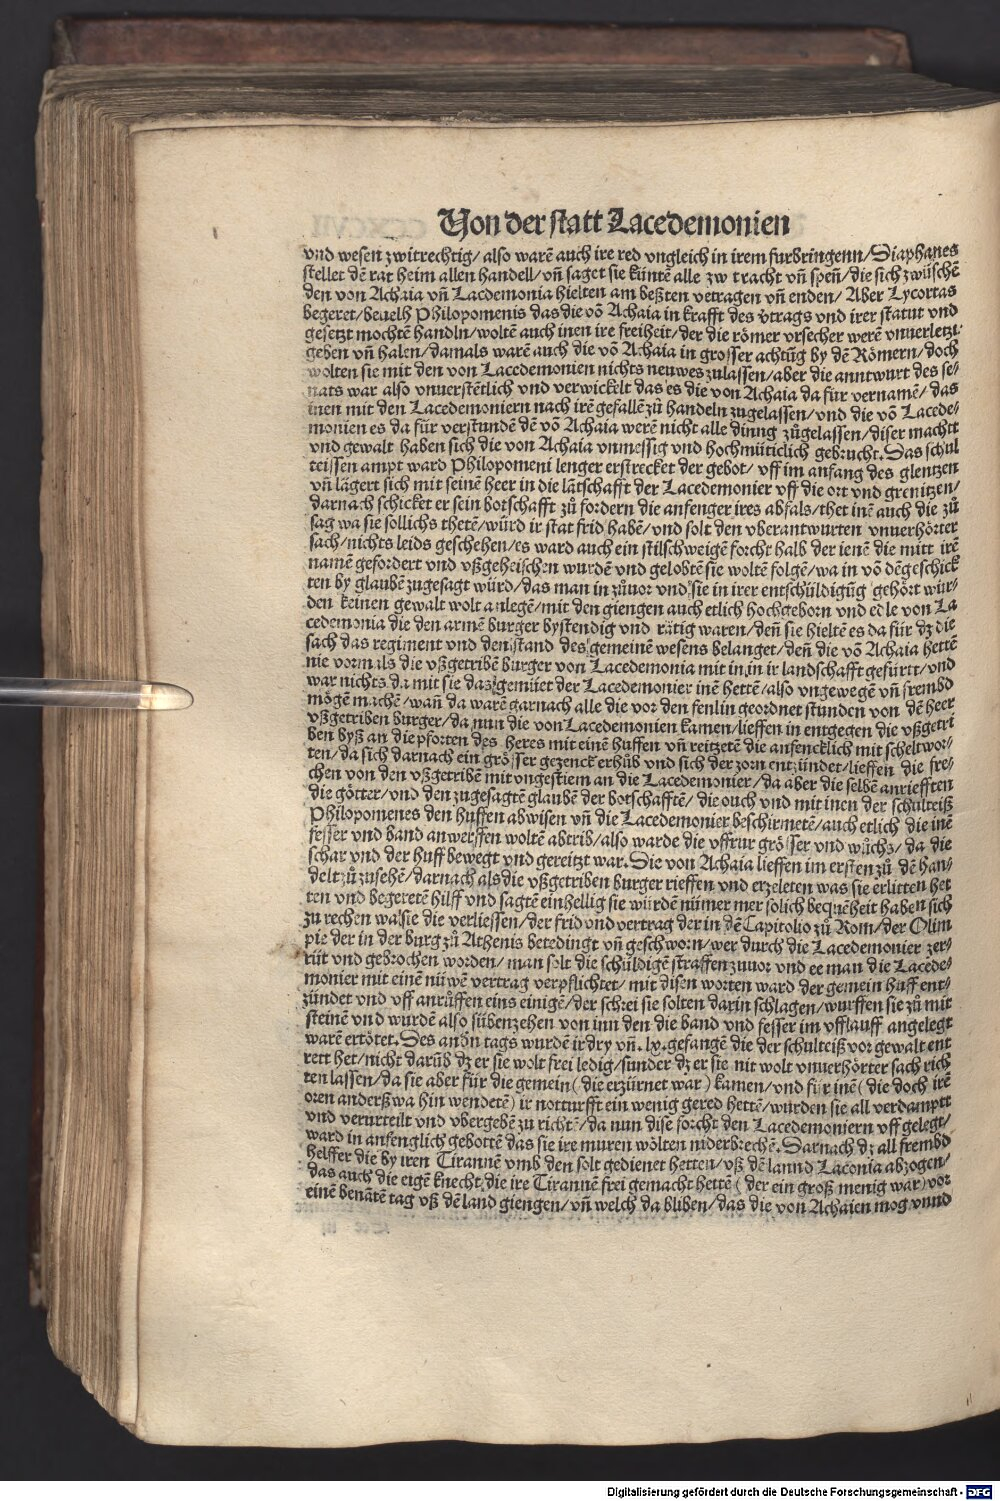 Von der statt Lacedemonien
vnd wesen zwitrechtig/ also warē auch ire red vngleich in irem furbringenn/ Diaphanes
stellet dē rat heim allen handell/ vñ saget sie kūntē alle zw tracht vñ speñ/ die sich zwüschē
den von Achaia vñ Lacdemonia hielten am beßten vetragen vñ enden/ Aber Lycortas
begeret/ beuelh Philopomenis das die vō Achaia in krafft des v̄trags vnd irer statut vnd
gesetzt mochtē handln/ woltē auch inen ire freiheit/ der die römer vrsecher werē vnuerletzt
geben vñ halen/ damals warē auch die vō Achaia in grosser achtūg by dē Römern/ doch
wolten sie mit den von Lacedemonien nichts neuwes zulassen/ aber die anntwurt des se⸗
nats war also vnuerstētlich vnd verwickelt das es die von Achaia da für vernamē/ das
inen mit den Lacedemoniern nach irē gefallē zů handeln zugelassen/ vnd die vō Lacede⸗
monien es da für verstundē dē vō Achaia werē nicht alle dinng zůgelassen/ diser machtt
vnd gewalt haben sich die von Achaia vnmessig vnd hochmüticlich gebrucht. Das schul
teissen ampt ward Philopomeni lenger erstrecket der gebot/ vff im anfang des glentzen
vñ lägert sich mit seinē heer in die lātschafft der Lacedemonier vff die ort vnd grenitzen/
darnach schicket er sein botschafft zů fordern die anfenger ires abfals/ thet inē auch die zů
sag wa sie sollichs thetē/ würd ir stat frid habē/ vnd solt den vberantwurten vnuerhörter
sach/ nichts leids geschehen/ es ward auch ein stilschweigē forcht halb der ienē die mitt irē
namē gefordert vnd vßgeheischen wurdē vnd gelobtē sie woltē folgē/ wa in vō dē geschick
ten by glaubē zugesagt würd/ das man in zůuor vnd sie in irer entschüldigūg gehört wur⸗
den keinen gewalt wolt anlegē/ mit den giengen auch etlich hochgeborn vnd edle von La
cedemonia die den armē burger bystendig vnd rätig waren/ deñ sie hieltē es da für dz die
sach das regiment vnd den stand des gemeinē wesens belanget/ deñ die vō Achaia hettē
nie vormals die vßgetribē burger von Lacedemonia mit in in ir landschafft gefürtt/ vnd
war nichts da mit sie das gemüet der Lacedemonier inē hettē/ also vngewegē vñ frembd
mögē machē/ wañ da warē garnach alle die vor den fenlin geordnet stunden von dē heer
vßgetriben burger/ da nun die von Lacedemonien kamen/ lieffen in entgegen die vßgetri
ben byß an die pforten des heres mit einē huffen vñ reitzetē die anfencklich mit scheltwor⸗
ten/ da sich darnach ein grösser gezenck erhůb vnd sich der zorn entzündet/ lieffen die fre⸗
chen von den vßgetribē mit vngestiem an die Lacedemonier/ da aber die selbē anriefften
die götter/ vnd den zugesagtē glaubē der botschafftē/ die ouch vnd mit inen der schulteiß
Philopomenes den huffen abwisen vñ die Lacedemonier beschirmetē/ auch etlich die inē
fesser vnd band anwerffen woltē abtrib/ also warde die vffrur grösser vnd wůchs/ da die
schar vnd der huff bewegt vnd gereitzt war. Die von Achaia lieffen im ersten zů dē han⸗
delt zů zusehē/ darnach als die vßgetriben burger rieffen vnd erzeleten was sie erlitten het
ten vnd begeretē hilff vnd sagtē einhellig sie würdē nümer mer solich bequēheit haben sich
zu rechen wa sie die verliessen/ der frid vnd vertrag der in dē Capitolio zů Rom/ der Olim
pie der in der burg zů Athenis betedingt vñ geschworn/ wer durch die Lacedemonier zer⸗
rüt vnd gebrochen worden/ man solt die schüldigē straffen zuuor vnd ee man die Lacede⸗
monier mit einē nüwē vertrag verpflichtet/ mit disen worten ward der gemein huff ent⸗
zündet vnd vff anrůffen eins einigē/ der schrei sie solten darin schlagen/ wurffen sie zů mit
steinē vnd wurdē also sübenzehen von inn den die band vnd fesser im vfflauff angelegt
warē ertötet. Des andn̄ tags wurdē ir dry vñ .lx. gefangē die der schulteiß vor gewalt ent
rett het/ nicht darūb dz er sie wolt frei ledig/ sunder dz er sie nit wolt vnuerhörter sach rich
ten lassen/ da sie aber für die gemein ( die erzürnet war ) kamen/ vnd für inē ( die doch irē
oren anderßwa hin wendetē ) ir notturfft ein wenig gered hettē/ wurden sie all verdamptt
vnd verurteilt vnd vbergebē zu richtē/ da nun dise forcht den Lacedemoniern vff gelegt/
ward in anfenglich gebottē das sie ire muren wölten niderbrechē. Darnach dz all frembd
helffer die by iren Tirannē vmb den solt gedienet hetten/ vß dē lannd Laconia abzogen/
das auch die eigē knecht die ire Tirannē frei gemacht hettē ( der ein groß menig war ) vor
einē benātē tag vß dē land giengen/ vñ welch da bliben/ das die von Achaien mog vnnd
Digitalisierung gefördert durch die Deutsche Forschungsgemeinschaft - DFG